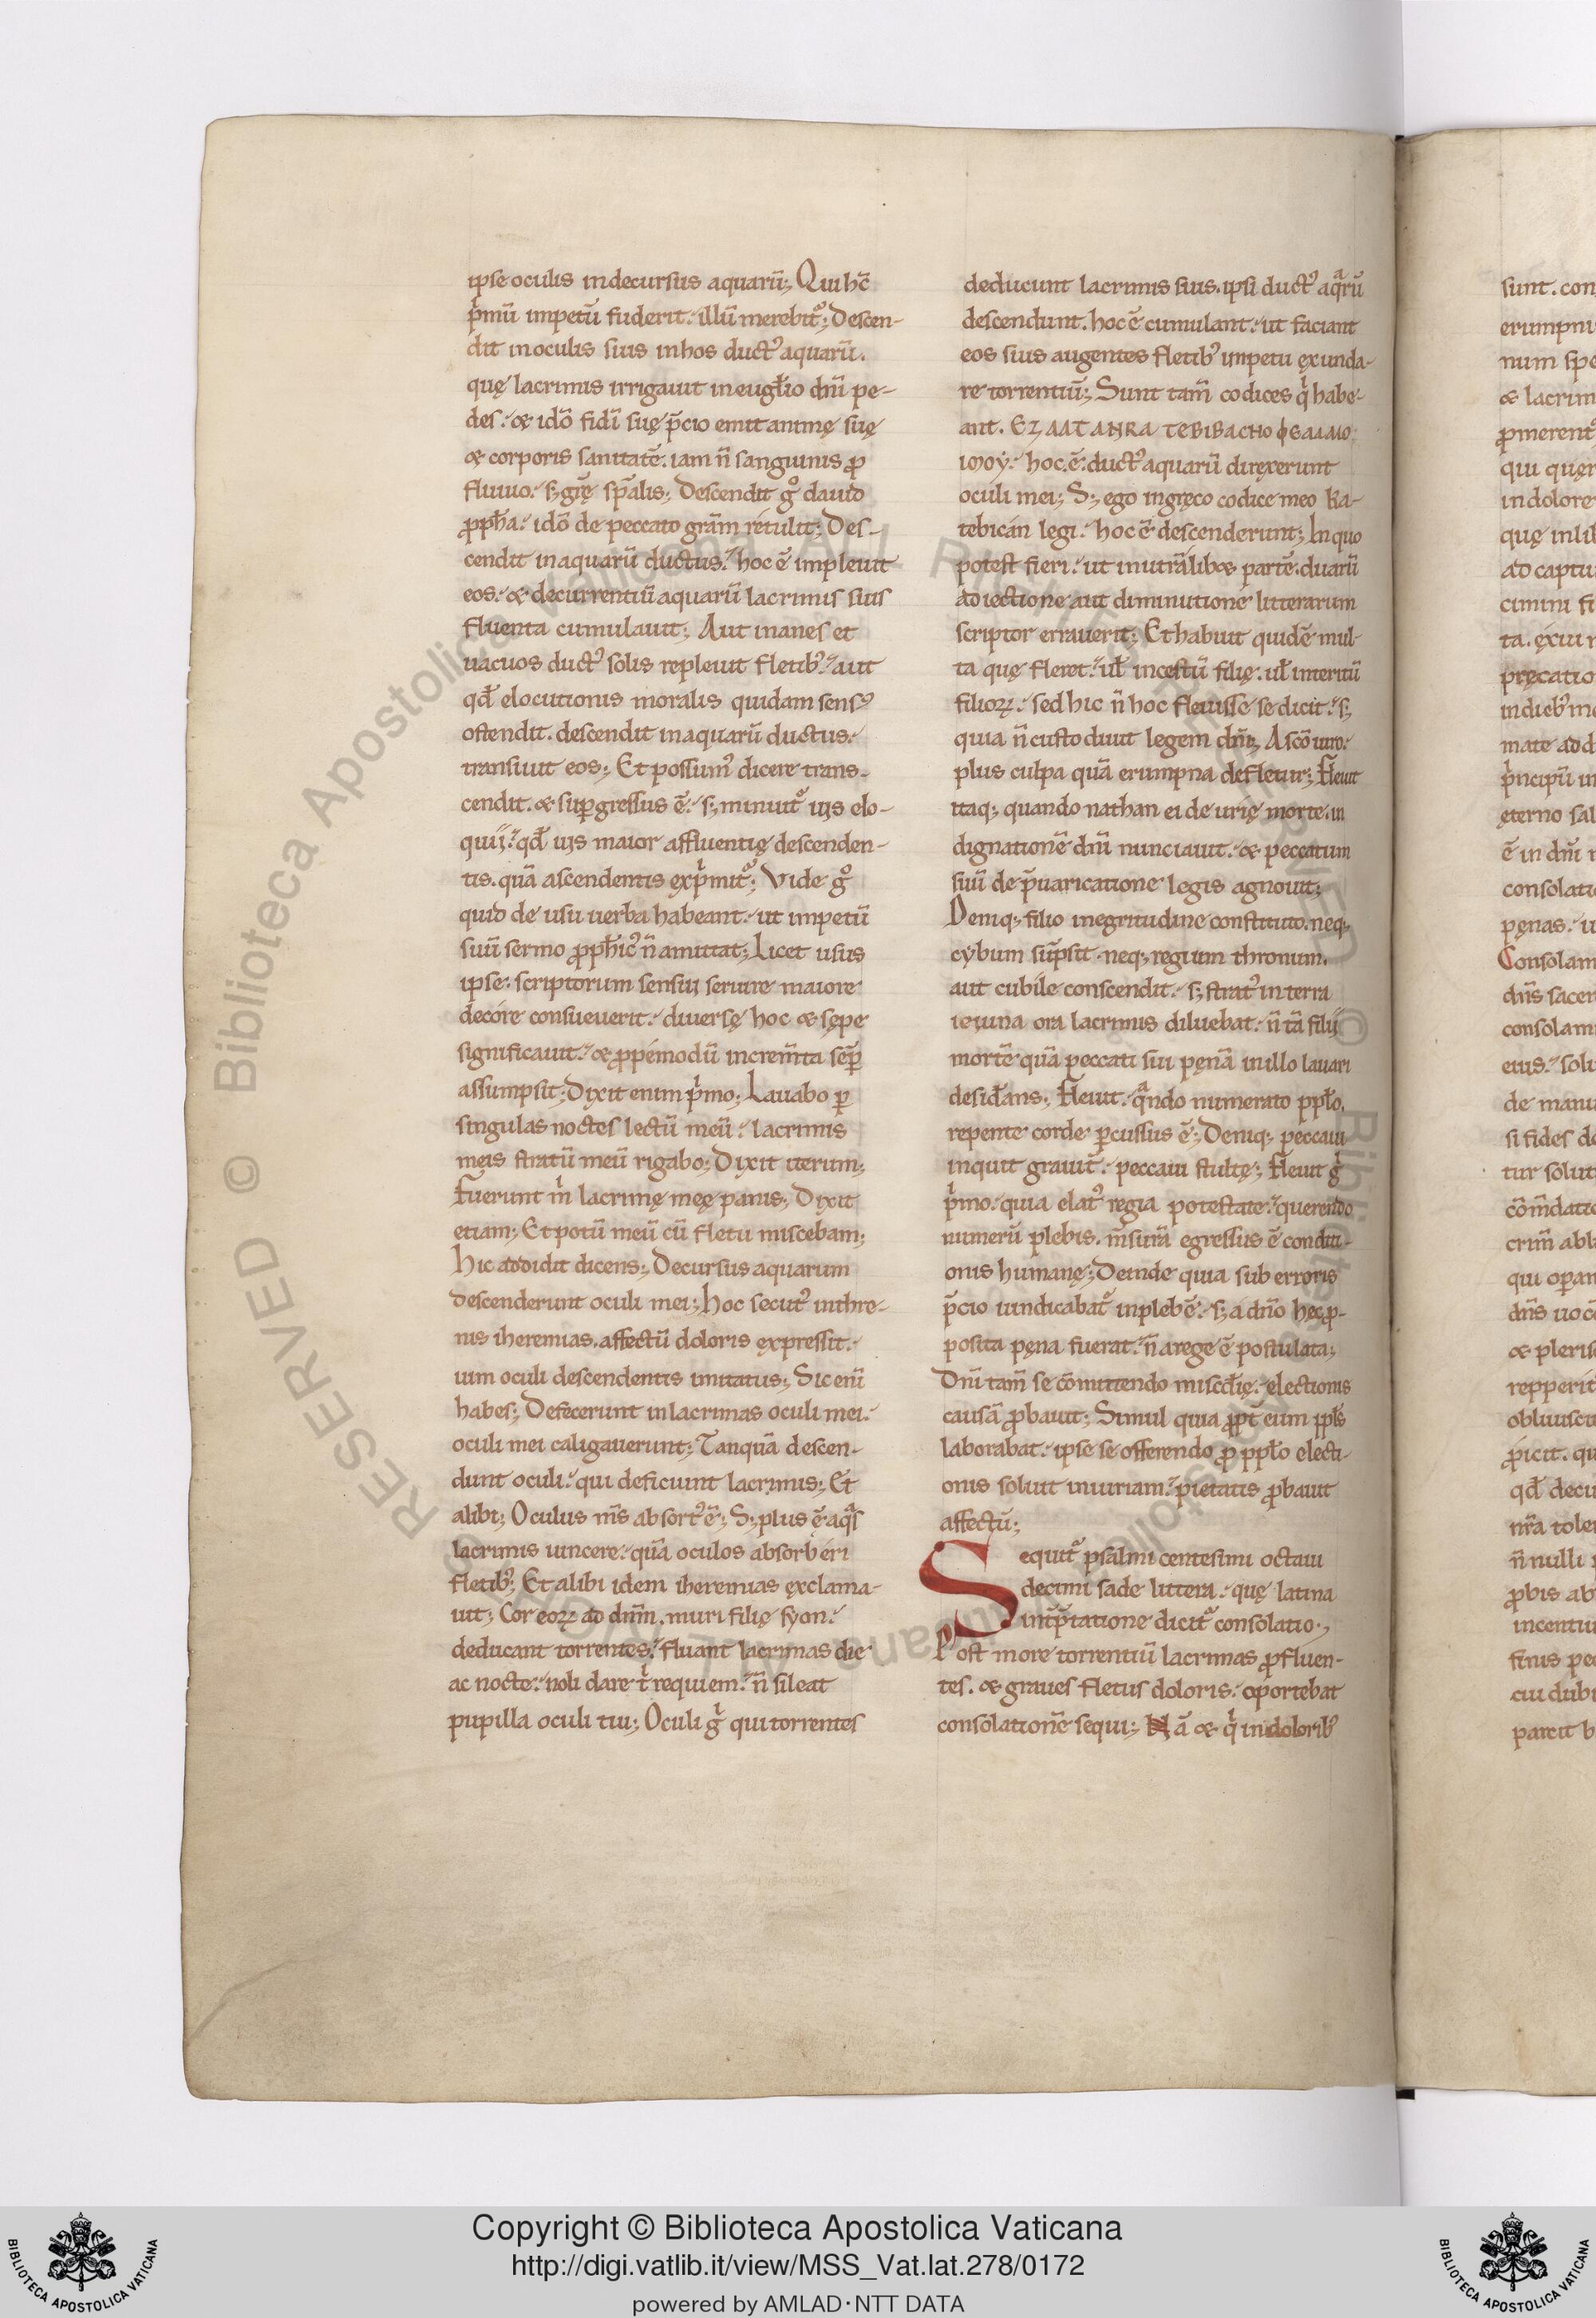 ipse oculis indecursus aquarū; Qui hc̄
p͛mū impetū fuderit. illū merebit᷑; Descen-
dit inoculis suis inhos duct᷒ aquarū.
quę lacrimis irrigauit in eugl̄io dn̄i pe-
des. & idō fidī suę p̄cio emit animę suę
& corporis sanitatē. iam n̄ sanguinis ꝓ
fluuio. s; grę̄ spālis; Descendit g̊ dauid
ꝓph̄a. idō de peccato grām rétulit; Des-
cendit inaquarū ductus. hoc ē impleuit
eos. & decurrentiū aquarū lacrimis suis
fluenta cumulauit; Aut inanes et
uacuos duct᷒ solis repleuit fletib᷒. aut
qd̄ elocutionis moralis quidam sens᷒
ostendit. descendit inaquarū ductus.
transiuit eos; Et possum᷒ dicere trans-
cendit. & suꝑgressus ē. s; minuit᷑ uis elo-
quii. qd̄ uis maior affluentię descenden-
tis. quā ascendentis exp͛mit᷑; Vide g̊
quid de usu uerba habeant. ut impetū
suū sermo ꝓph̄ic᷒ n̄ amittat; Licet usus
ipse. scriptorum sensui seruire maiore
decóre consueuerit. diuersę hoc & sępe
significauit. & ꝓpémodū increm̄ta sēꝑ
assumpsit; Dixit enim p͛mo; Lauabo ꝑ
singulas noctes lectū meū. lacrimis
meis stratū meū rigabo; Dixit iterum;
Fuerunt m͛ lacrimę meę panis; Dixit
etiam; Et potū meū cū fletu miscebam;
Hic addidit dicens; Decursus aquarum
descenderunt oculi mei; Hoc secut᷒ inthre-
nis iheremias. affectū doloris expressit.
uim oculi descendentis imitatus; Sic enī
habes; Defecerunt in lacrimas oculi mei.
oculi mei caligauerunt; Tanquā descen-
dunt oculi. qui deficiunt lacrimis; Et
alibi; Oculus m̄s absort᷒ ē; S; plus ē aqᷓs
lacrimis uincere. quā oculos absorbéri
fletib᷒; Et alibi idem iheremias exclama-
uit; Cor eoꝝ ad dn̄m. muri filię syon.
deducant torrentes. fluant lacrimas die
ac nocte. noli dare t͛ requiem. n̄ sileat
pupilla oculi tui; Oculi g͛ qui torrentes
deducunt lacrimis suis. ipsi duct᷒ aqᷓrū
descendunt. hoc ē cumulant. ut faciant
eos suis augentes fletib᷒ impetu exunda-
re torrentiū; Sunt tam̄ codices q͛ habe-
ant.
hoc.ē. duct᷒ aquarū direxerunt
oculi mei; S; ego ingręco codice meo Ka-
tebicán legi. hoc ē descenderunt; In quo
potest fieri. ut inutrālibꝫ partē. duarū
adiectione aut diminutioné litterarum
scriptor errauerit; Et habuit quidē mul-
ta quę fleret. ul̄ incestū filię. ul̄ interitū
filioꝝ. sed hic n̄ hoc fleuisse se dicit. s;
quia n̄ custodiuit legem dn̄i; A scō uiro.
plus culpa quā erumpna defletur; Fleuit
itaq; quando nathan ei de urię morte. in
dignationē dn̄i nunciauit. & peccatum
suū de p̄uaricatione legis agnouit;
Deniq; filio inegritudine constituto. neq;
cẏbum sūpsit. neq; regium thronum.
aut cubile conscendit. s; strat᷒ interra
ieiuna ora lacrimis diluebat. n̄ tā filij
mortē quā peccati sui pęnā inillo lauari
desid̄ans; Fleuit. qᷓndo numerato ppl̄o.
repente corde ꝑcussus ē; Deniq; peccaui
inquit grauit̄. peccaui stultę; Fleuit g͛
p͛mo. quia elat᷒ regia potestate. querendo
numerū plebis. m̄surā egressus ē conditi-
onis humanę; Deinde quia sub erroris
p̄cio uindicabat᷑ inplebē. s; a dn̄o hec ꝓ-
posita pęna fuerat. n̄ arege ē postulata;
Dn̄i tam̄ se cōmittendo miscd̄ię. electionis
causā ꝓbauit; Simul quia ꝓpt̄ eum ppl̄s
laborabat. ipse se offerendo ꝓ ppl̄o electi-
onis soluit iniuriam. pietatis ꝓbauit
affectū;
Sequit᷑ psalmi centesimi octaui
decimi sade littera. quę latina
int̄p̄tatione dicit᷑ consolatio.,
Post more torrentiū lacrimas ꝓfluen-
tes. & graues fletus doloris. oportebat
consolationē sequi; Nā & q͛ indolorib᷒
sunt. con
erumpn
num spe
& lacrim
ꝓmerent᷑
qui quęr
indolore
quę inlib
ad captu
cimini fi
ta. exiui
pręcatio
indieb᷒ m
mate ad d
p͛ncipū in
ęterno sal
ē in dn̄i
consolati
pęnas. u
Consolam
dn̄s sacer
consolam
eius. solu
de manu
si fides d
tur solut
cōm̄datio
crim̄ abl
qui oꝑan
dn̄s uo
& pleris
repperit
obliuisci
ꝓicit. qu
qd̄ decu
nr̄a tole
n̄ nulli
ꝓbis ab
incentiu
finis pec
cui dubi
parcit b
Copyright © Biblioteca Apostolica Vaticana
http://digi.vatlib.it/view/MSS_Vat.lat.278/0172
powered by AMLAD·NTT DATA
BIBLIOTECA APOSTOLICA VATICANA
BIBLIOTECA APOSTOLICA VATICANA